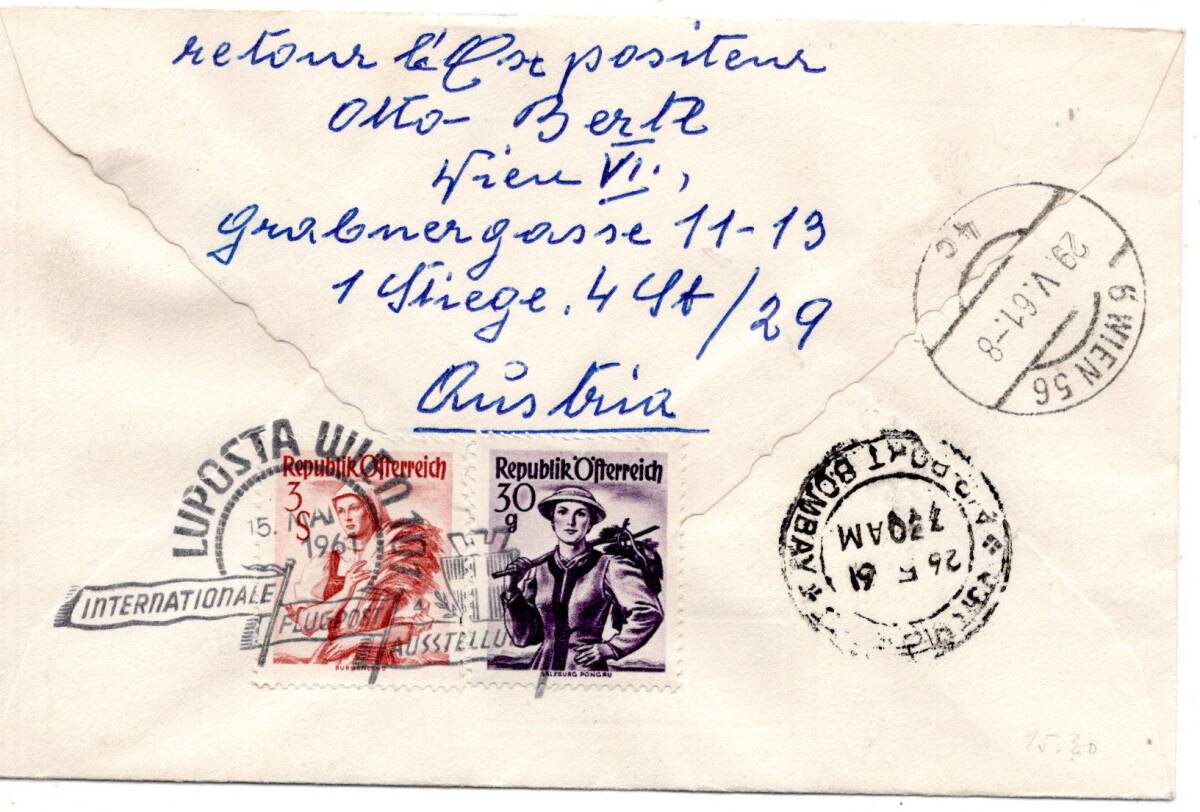 retour l'Expositeur
Otto Bertl
Wien VI.,
Grabnergasse 11-13
1 Stiege. 4 St/29
Austria
6 WIEN 56
29.V.61.-8
4c
LUPOSTA WIEN
15. MAI
1961
INTERNATIONALE
FLUGPOST
AUSSTELLU
Republik Österreich
3
S
BURGENLAND
Republik Österreich
30
g
SALZBURG PONGAU
PORT BOMBAY
730AM
26 5 61
15.20